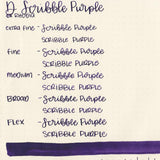 D. Scribble Purple
extra fine - Scribble Purple
SCRIBBLE PURPLE
fine - Scribble Purple
SCRIBBLE PURPLE
medium - Scribble Purple
SCRIBBLE PURPLE
BROAD - Scribble Purple
SCRIBBLE PURPLE
FLEX - Scribble Purple
SCRIBBLE PURPLE